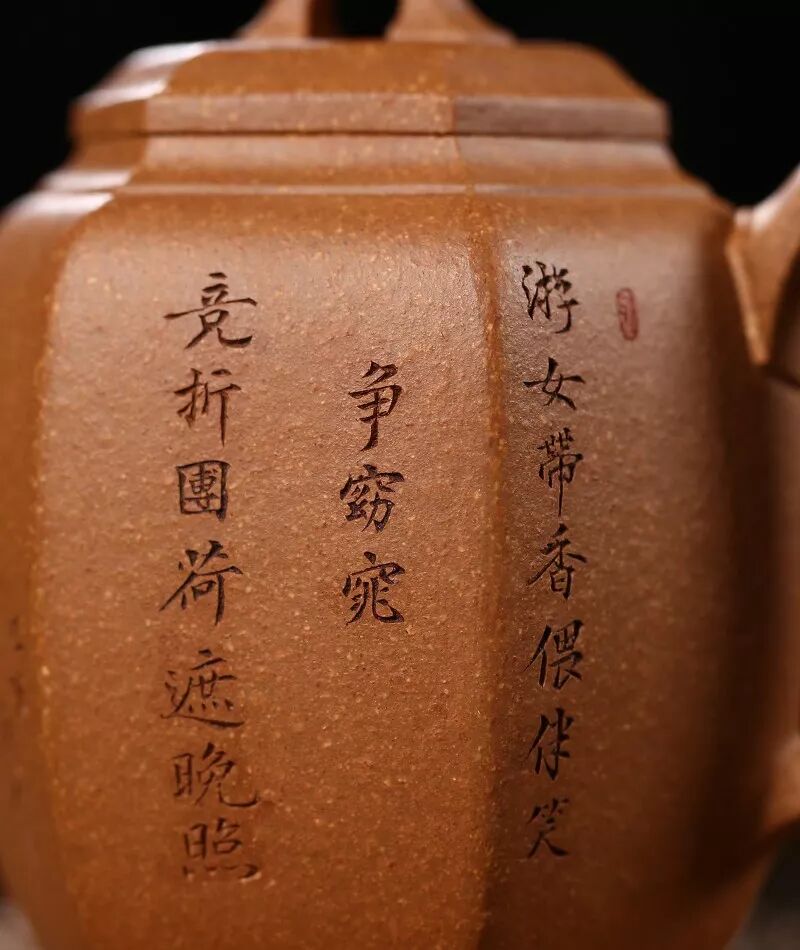 游女帶香偎伴笑
争窈窕
竞折團荷遮晚照